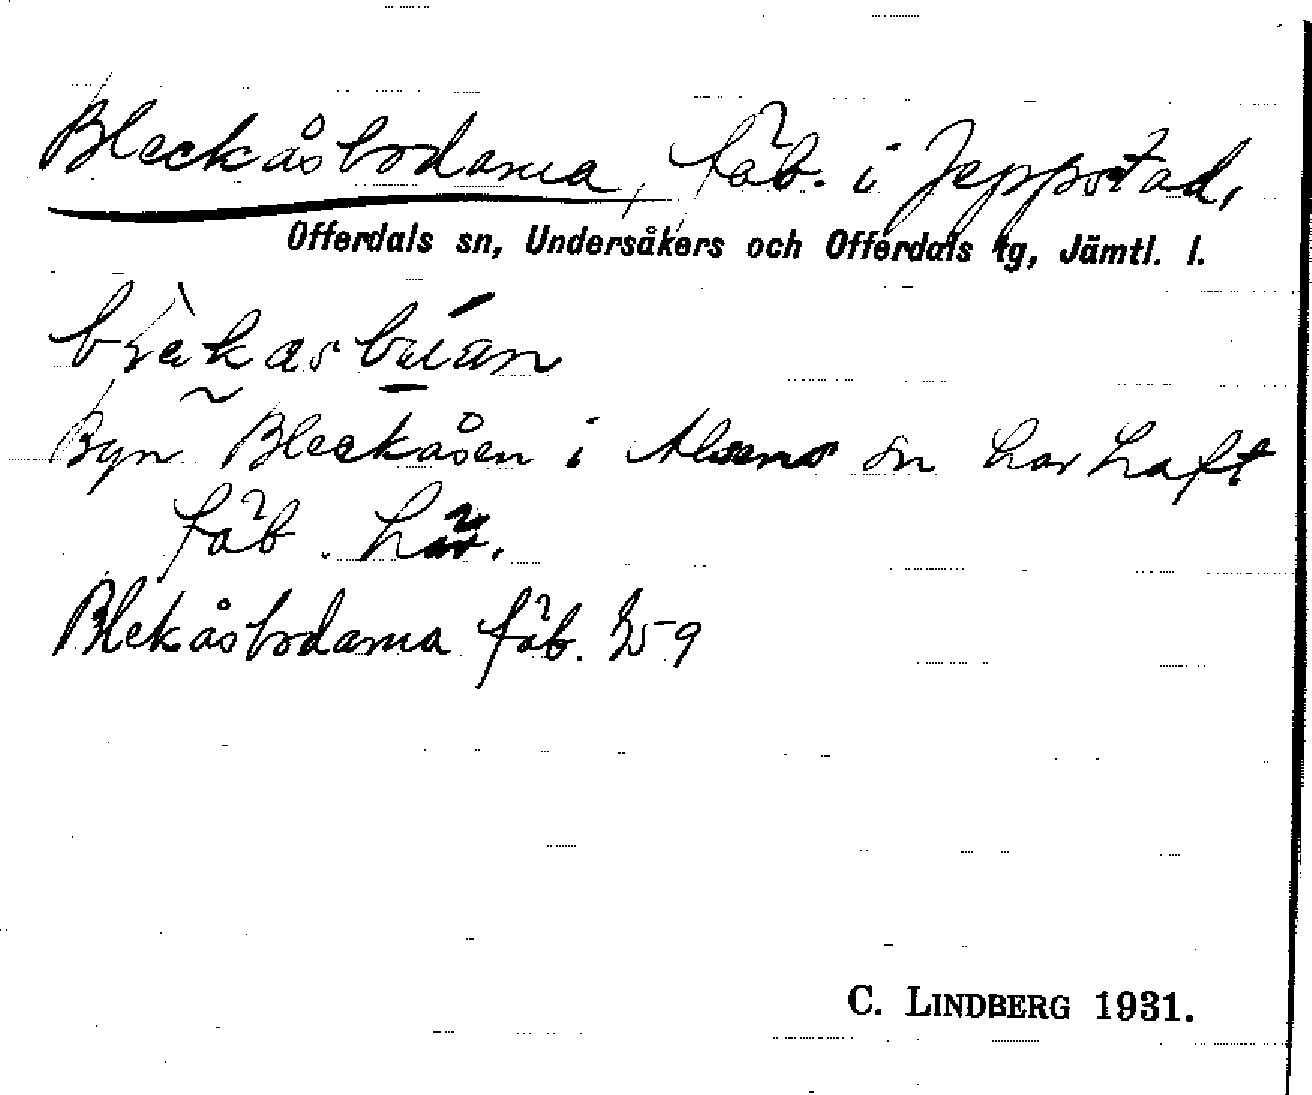 Bleckåsbodarna, fäb. i Jeppstad,
Offerdals sn, Undersåkers och Offerdals tg, Jämtl. l.
Byn Bleckåsen i Alsens sn har haft
fäb. här.
Blekåsbodarna fäb. 59
C. LINDBERG 1931.